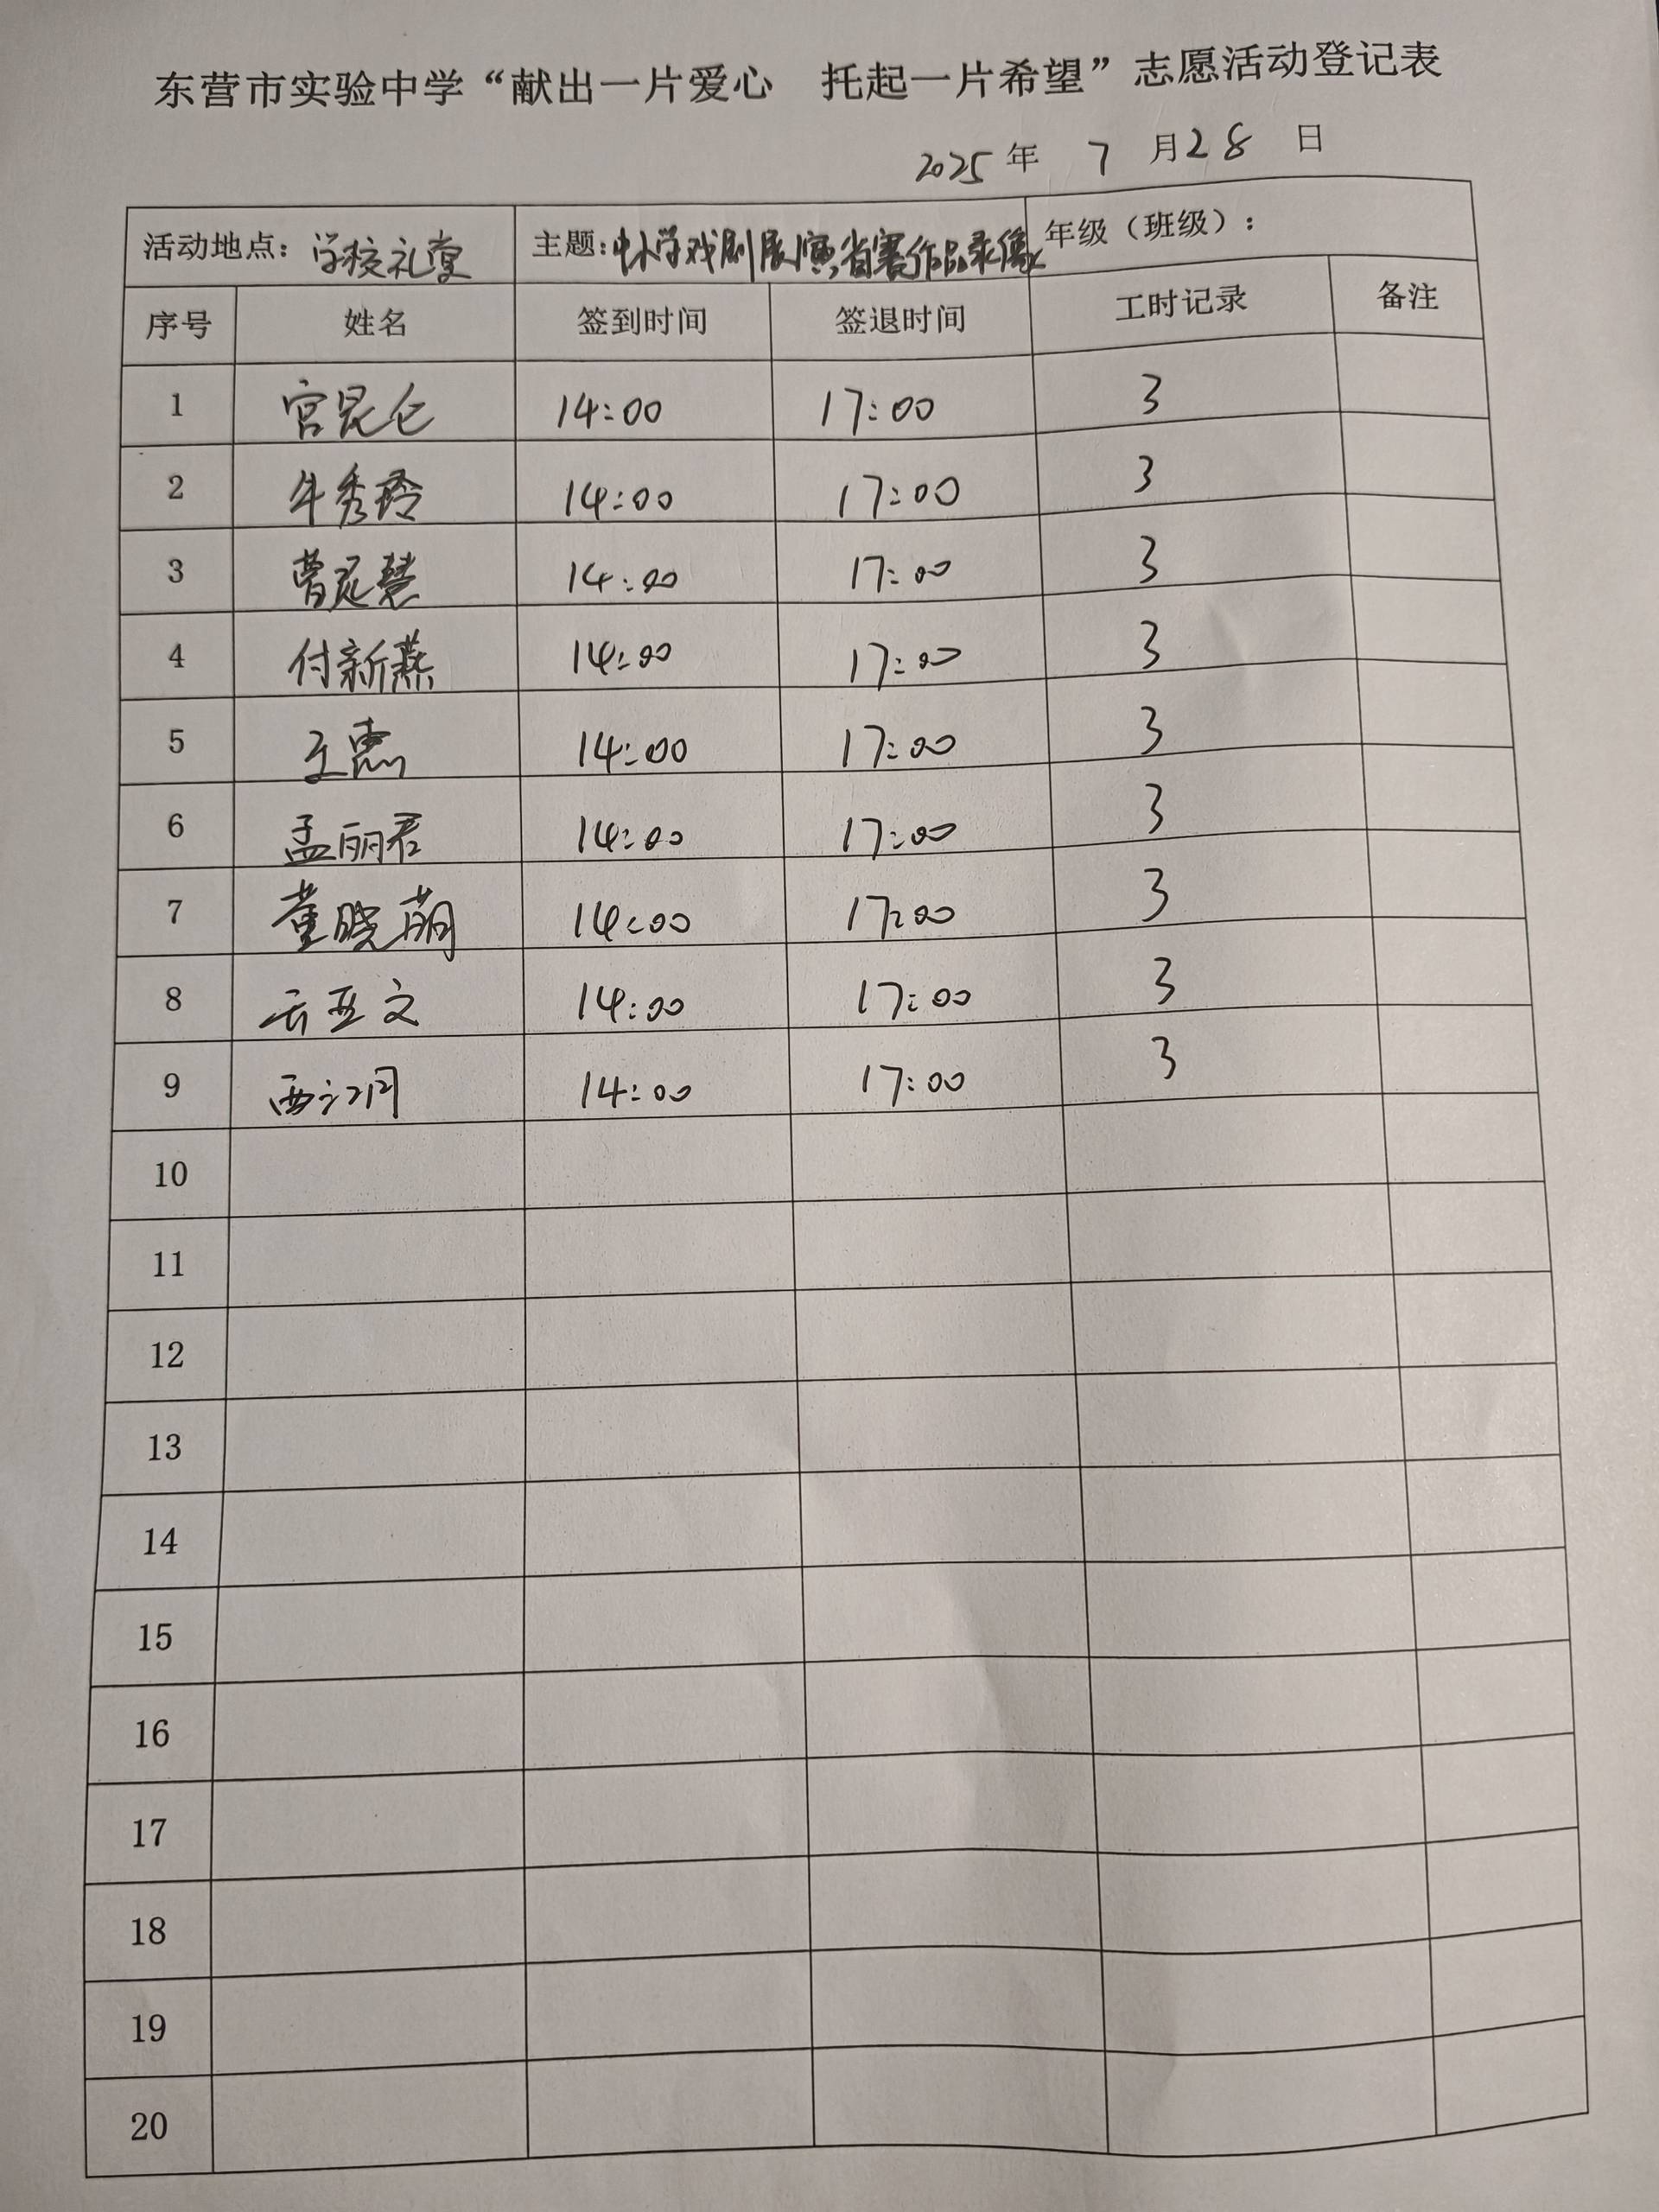 东营市实验中学“献出一片爱心 托起一片希望”志愿活动登记表
2025 年 7 月 28 日
活动地点：学校礼堂 主题：中小学戏剧展演省赛作品录像 年级（班级）：
序号 姓名 签到时间 签退时间 工时记录 备注
1 宫昆仑 14:00 17:00 3
2 牛秀玲 14:00 17:00 3
3 曹灵慧 14:00 17:00 3
4 付新燕 14:00 17:00 3
5 王惠 14:00 17:00 3
6 孟丽君 14:00 17:00 3
7 董晓萌 14:00 17:00 3
8 云亚文 14:00 17:00 3
9 西江月 14:00 17:00 3
10
11
12
13
14
15
16
17
18
19
20